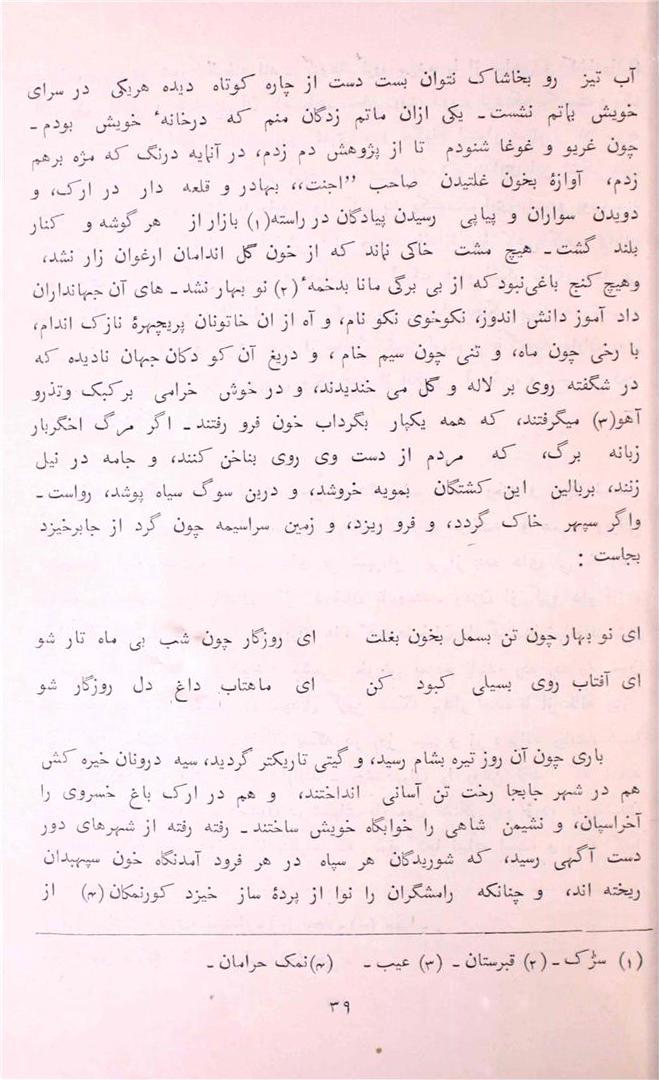 آب تیز رو بخاشاک نتوان بست دست از چاره کوتاه دیده هریکی در سرای
خویش بماتم نشست ـ یکی ازان ماتم زدگان منم که درخانهٔ خویش بودم ـ
چون غریو و غوغا شنودم تا از پژوهش دم زدم، در آنمایه درنگ که مژه برهم
زدم، آوازهٔ بخون غلتیدن صاحب ’’اجنت،، بهادر و قلعه دار در ارک، و
دویدن سواران و پیاپی رسیدن پیادگان در راسته(۱) بازار از هر گوشه و کنار
بلند گشت ـ هیچ مشت خاکی نماند که از خون گل اندامان ارغوان زار نشد،
وهیچ کنج باغی نبود که از بی برگی مانا بدخمهٔ (۲) نو بهار نشد ـ های آن جهانداران
داد آموز دانش اندوز، نکوخوی نکو نام، و آه از ان خاتونان پریچهرهٔ نازک اندام،
با رخی چون ماه، و تنی چون سیم خام، و دریغ آن کو دکان جهان نادیده که
در شگفته روی بر لاله و گل می خندیدند، و در خوش خرامی برکبک وتذرو
آهو(۳) میگرفتند، که همه یکبار بگرداب خون فرو رفتند ـ اگر مرگ اخگربار
زبانه برگ، که مردم از دست وی روی بناخن کنند، و جامه در نیل
زنند، بربالین این کشتگان بمویه خروشد، و درین سوگ سیاه پوشد، رواست ـ
واگر سپهر خاک گردد، و فرو ریزد، و زمین سراسیمه چون گرد از جابرخیزد
بجاست :
ای نو بهار چون تن بسمل بخون بغلت ای روزگار چون شب بی ماه تار شو
ای آفتاب روی بسیلی کبود کن ای ماهتاب داغ دل روزگار شو
باری چون آن روز تیره بشام رسید، و گیتی تاریکتر گردید، سیه درونان خیره کش
هم در شهر جابجا رخت تن آسانی انداختند، و هم در ارک باغ خسروی را
آخراسپان، و نشیمن شاهی را خوابگاه خویش ساختند ـ رفته رفته از شهرهای دور
دست آگهی رسید، که شوریدگان هر سپاه در هر فرود آمدنگاه خون سپهبدان
ریخته اند، و چنانکه رامشگران را نوا از پردهٔ ساز خیزد کورنمکان (۴) از
(۱) سڑک ـ (۲) قبرستان ـ (۳) عیب ـ (۴)نمک حرامان ـ
۳۹